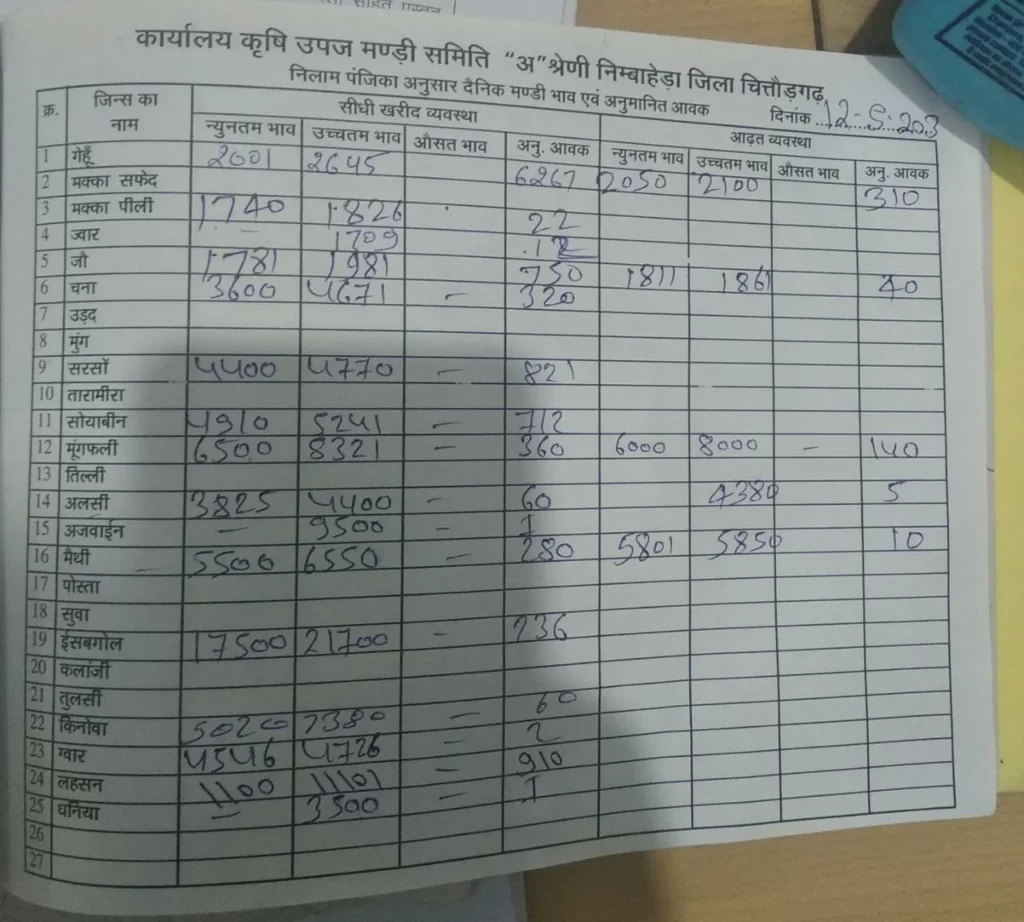 कार्यालय कृषि उपज मण्डी समिति "अ" श्रेणी निम्बाहेड़ा जिला चित्तौड़गढ़
निलाम पंजिका अनुसार दैनिक मण्डी भाव एवं अनुमानित आवक दिनांक
क्र. जिन्स का नाम सीधी खरीद व्यवस्था आढ़त व्यवस्था
न्युनतम भाव उच्चतम भाव औसत भाव अनु. आवक न्युनतम भाव उच्चतम भाव औसत भाव अनु. आवक
1 गेहूँ 2001 2645 6267 2050 2100 310
2 मक्का सफेद
3 मक्का पीली 1740 1826 22
4 ज्वार 1709
5 जौ 1781 1981 750 1811 1861 40
6 चना 3600 4671 - 320
7 उड़द
8 मुंग
9 सरसों 4400 4770 - 821
10 तारामीरा
11 सोयाबीन 4910 5241 - 712
12 मूंगफली 6500 8321 - 360 6000 8000 - 140
13 तिल्ली
14 अलसी 3825 4400 - 60 4380 5
15 अजवाईन - 9500 - 1
16 मैथी 5500 6550 - 280 5801 5850 10
17 पोस्ता
18 सुवा
19 ईसबगोल 17500 21700 - 236
20 कलांजी
21 तुलसी
22 किनोवा 5020 7380 - 60
23 ग्वार 4546 4726 - 2
24 लहसन 1100 11101 - 910
25 धनिया - 3500 - 1
26
27